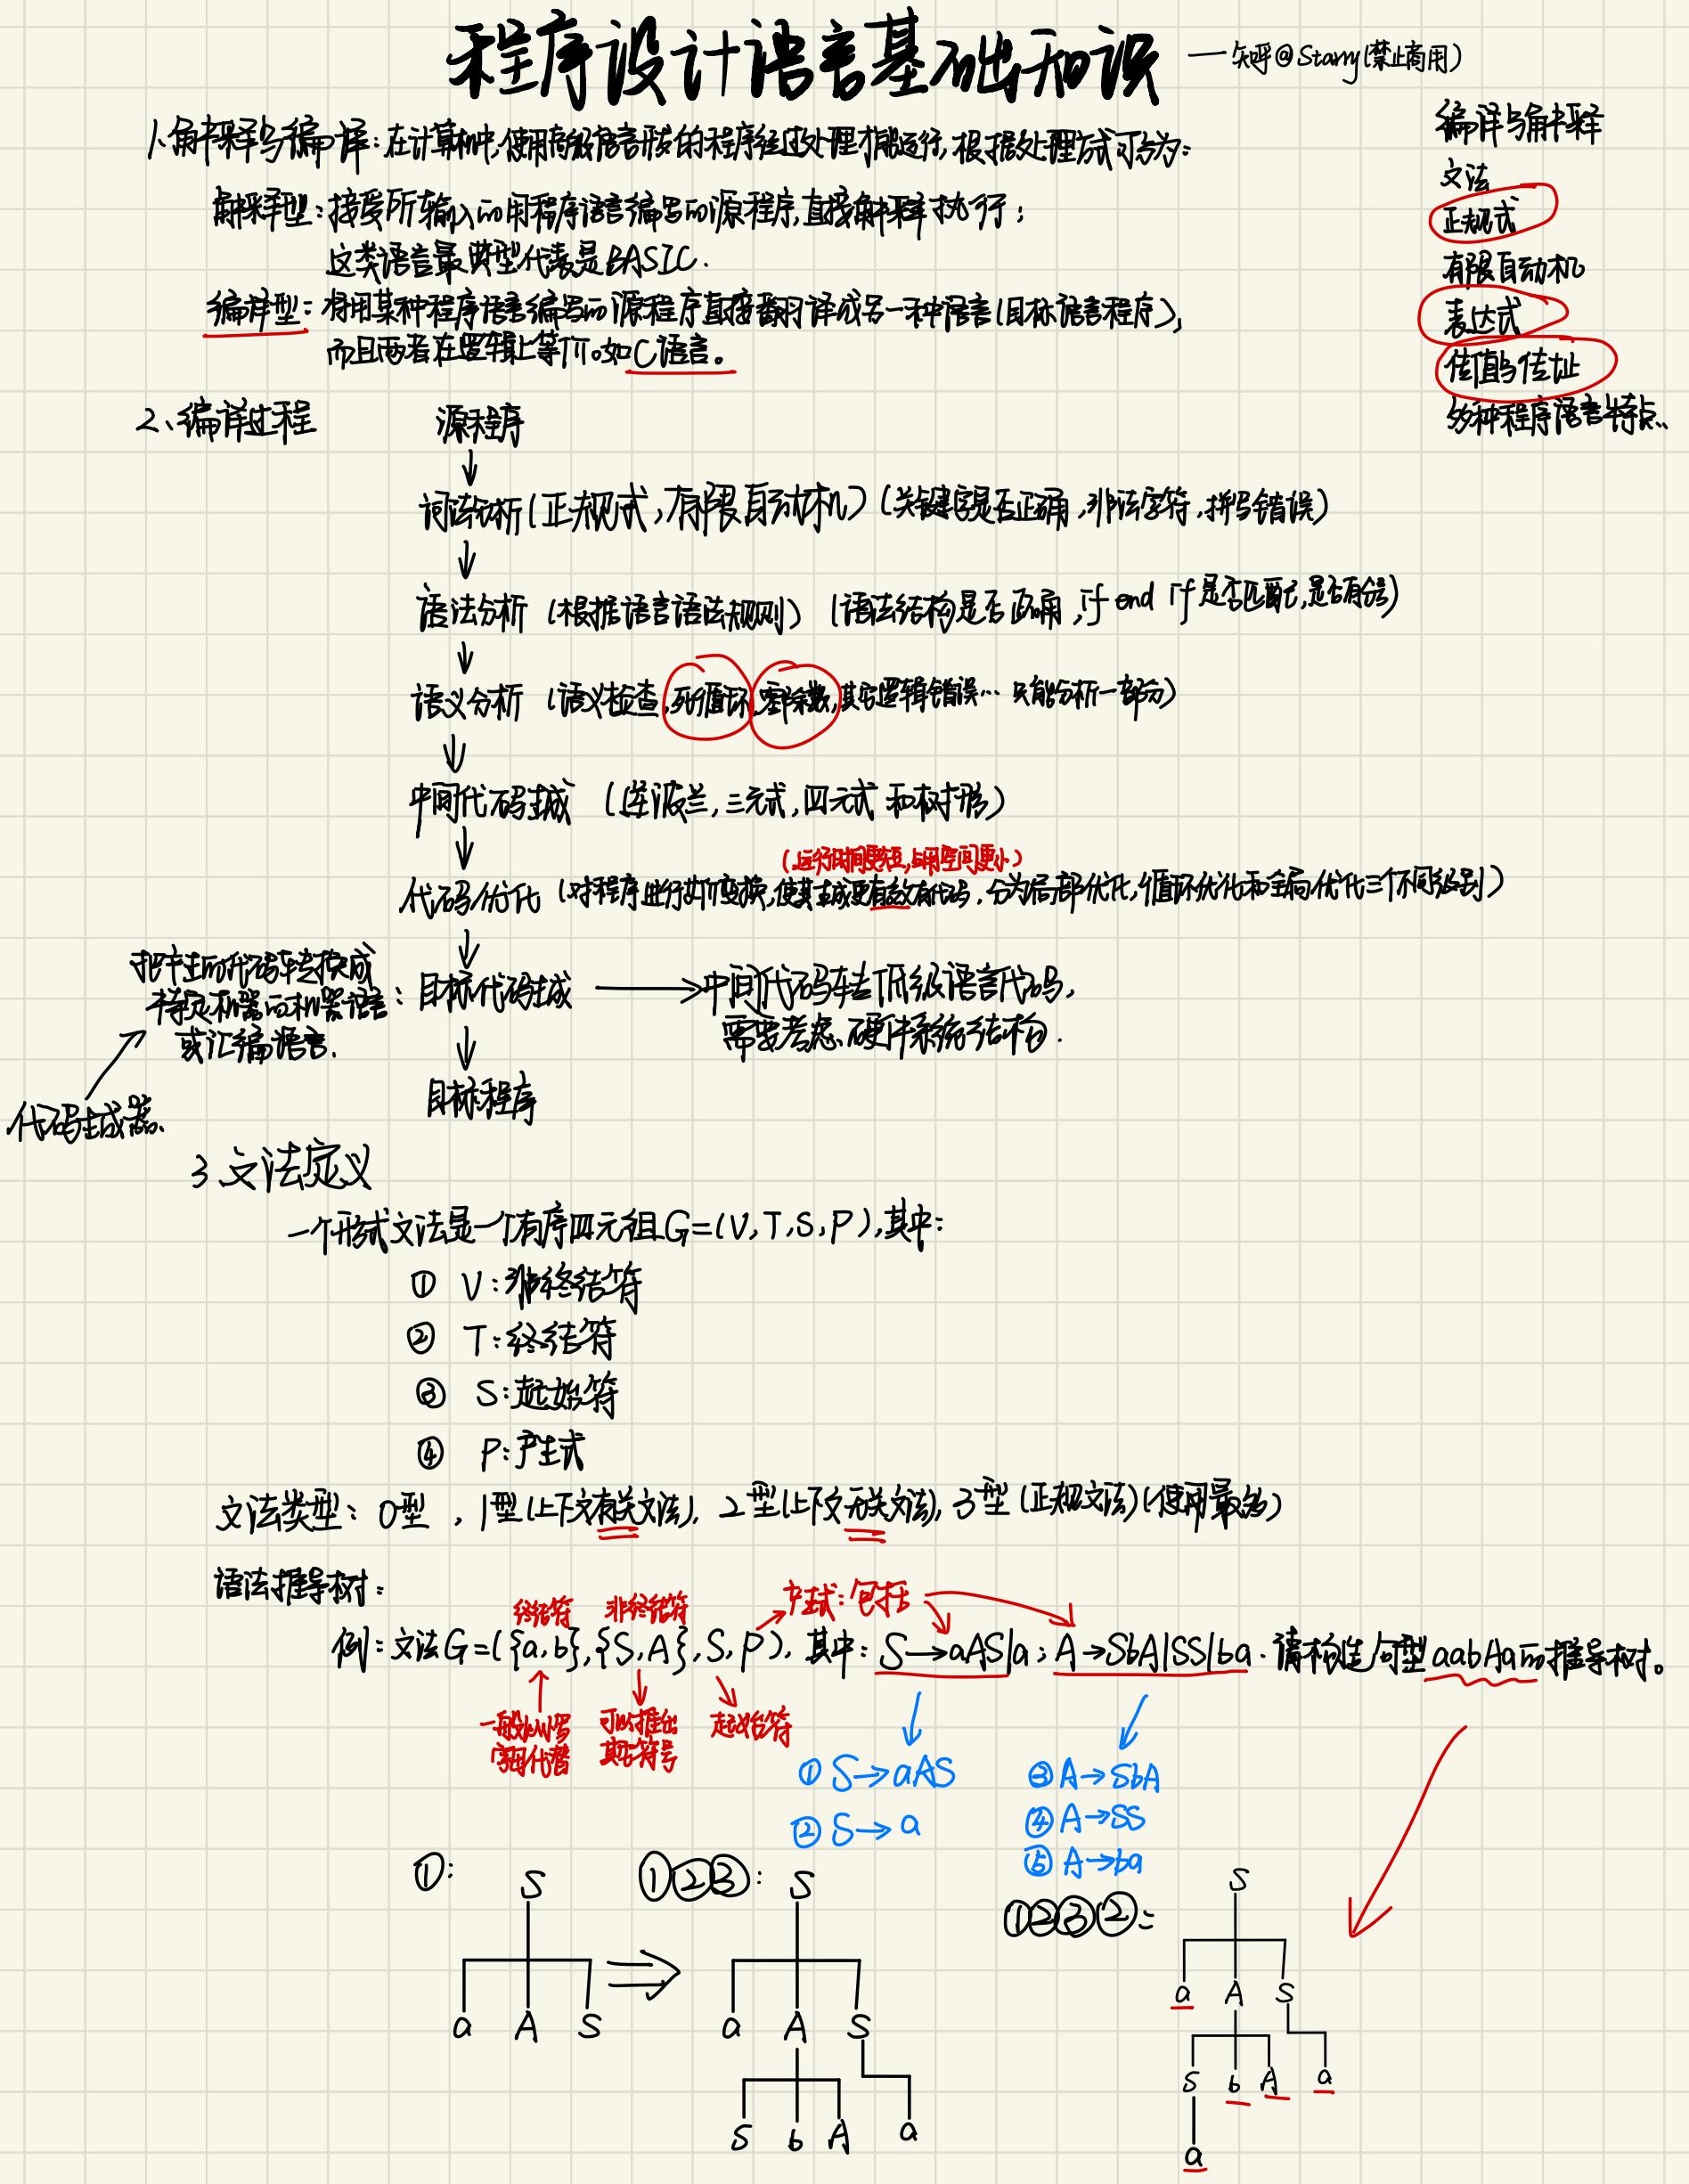 程序设计语言基础知识 —知乎@Starry(禁止商用)
编译与解释
文法
正规式
有限自动机
表达式
传值与传址
多种程序语言特点.
1、解释与编译:在计算机中,使用高级语言形成的程序经过处理才能运行,根据处理方式可分为:
解释型:接受所输入的用程序语言编写的源程序,直接解释执行;
这类语言最典型代表是BASIC.
编译型:将用某种程序语言编写的源程序直接翻译成另一种语言(目标语言程序),
而且两者在逻辑上等价。如C语言。
2、编译过程
源程序
词法分析(正规式,有限自动机)(关键字是否正确,非法字符,拼写错误)
语法分析(根据语言语法规则)(语法结构是否正确,if end if是否匹配,是否有分号)
语义分析(语义检查,死循环,零除数,其它逻辑错误…只能分析一部分)
中间代码生成(逆波兰,三元式,四元式和树形)
(运行时间更短,占用空间更小)
代码优化(对程序进行等价变换,使其生成更有效的代码,分为局部优化,循环优化和全局优化三个不同级别)
把产生的代码转换成
特定机器的机器语言
或汇编语言.
:目标代码生成
中间代码转低级语言代码,
需要考虑硬件系统结构.
目标程序
代码生成器.
3 文法定义
一个形式文法是一个有序四元组G=(V,T,S,P),其中:
① V:非终结符
② T:终结符
③ S:起始符
④ P:产生式
文法类型:0型,1型(上下文有关文法),2型(上下文无关文法),3型(正规文法)(使用最多)
语法推导树:
终结符 非终结符 产生式:包括
例:文法G=({a,b},{S,A},S,P),其中:S→aAS|a;A→SbA|SS|ba.请构造句型aabAa的推导树。
一般以小写
字母代替
可以推出
其它符号
起始符
① S→aAS
② S→a
③ A→SbA
④ A→SS
⑤ A→ba
①:
S
a A S
①②③:
S
a A S
S b A a
①②③②:
S
a A S
S b A a
a